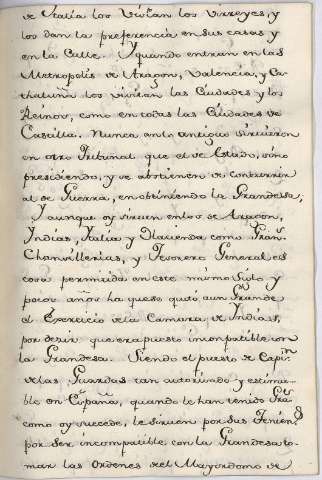 de Ytalia los Vissitan los Virreyes, y
los dan la preferencia en sus casas y
en la Calle. Y quando entran en las
Metropolis de Aragon, Valencia, y Ca-
thaluña los vissitan las Ciudades y los
Reinos, como en todas las Ciudades de
Castilla. Nunca en lo antiguo sirvieron
en otro Tribunal que el de Estado, sino
presidiendo, y se abstienen de concurrir
al de Guerra, en obtiniendo la Grandessa,
Y aunque oy sirven en los de Aragon,
Yndias, Ytalia y Hacienda como Gran.
Chancilleries, y Tesorero General es
cosa permitida en este mismo Siglo y
pocos años ha que se quitó a un Grande
el Exercicio de la Camara de Yndias,
por decir que era puesto incompatible con
la Grandesa. Siendo el puesto de Capi.n
de las Guardas tan autorizado y estima-
ble en España, quando le han tenido Gra.des
como oy succede, le sirven por sus Tenien.s
por ser incompatible con la Grandesa to-
mar las Ordenes del Mayordomo de